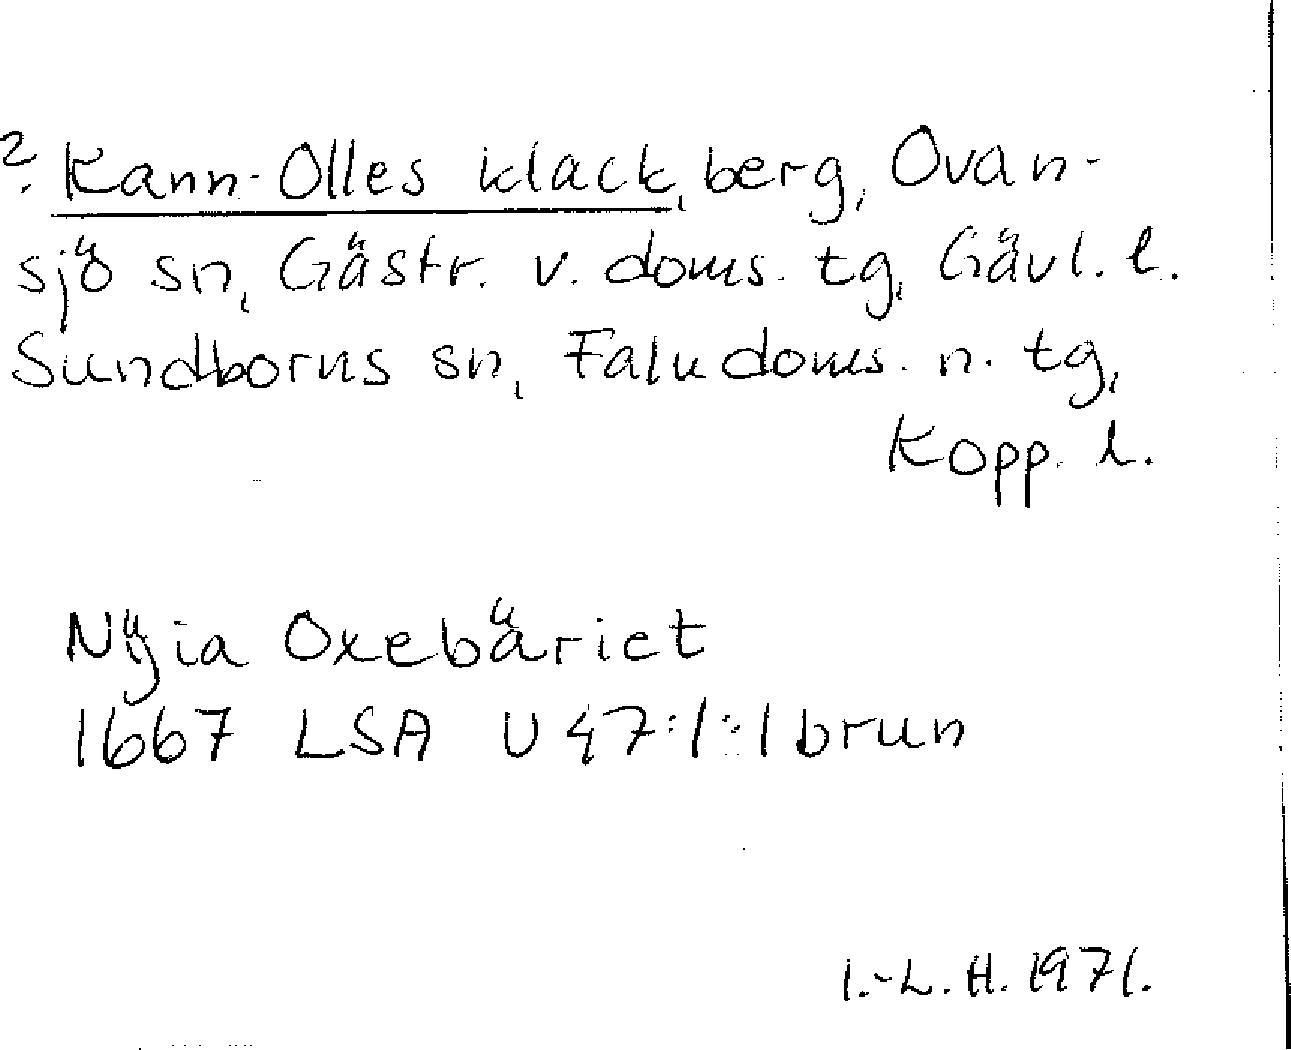 ? Kann-Olles klack, berg, Ovan-
sjö sn, Gästr. v. doms. tg, Gävl. l.
Sundborns sn, Falu doms. n. tg,
Kopp. l.
Nÿia Oxebäriet
1667 LSA U 47:1:1 brun
I.-L. H. 1971.